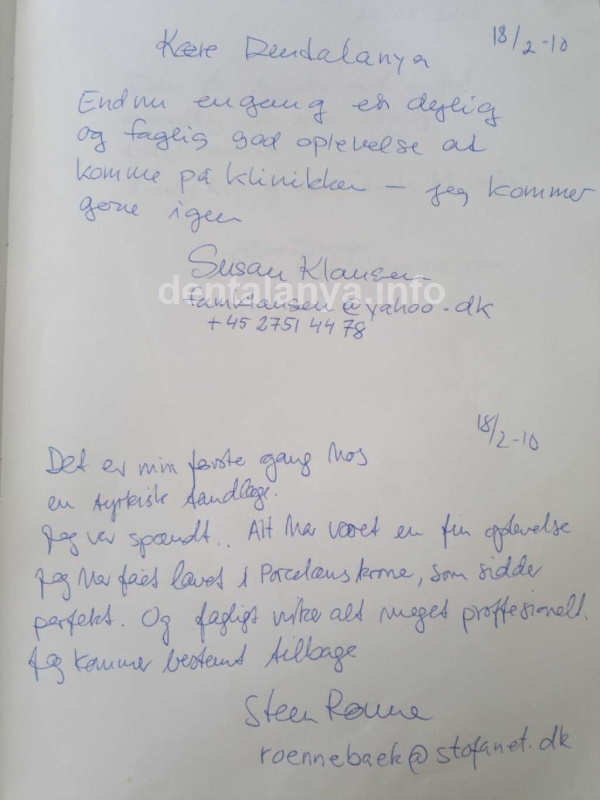 18/2-10
Kære Dentalanya
Endnu engang en dejlig
og faglig god oplevelse at
komme på klinikken – jeg kommer
gerne igen
Susan Klausen
dentalanya.info
famklausen@yahoo.dk
+45 2751 44 78
18/2-10
Det er min første gang hos
en tyrkisk tandlæge.
Jeg var spændt.. Alt har været en fin oplevelse
Jeg har fået lavet 1 Porcelænskrone, som sidder
perfekt. Og fagligt virker alt meget proffesionelt.
Jeg kommer bestemt tilbage
Steen Rønne
roennebaek@stofanet.dk